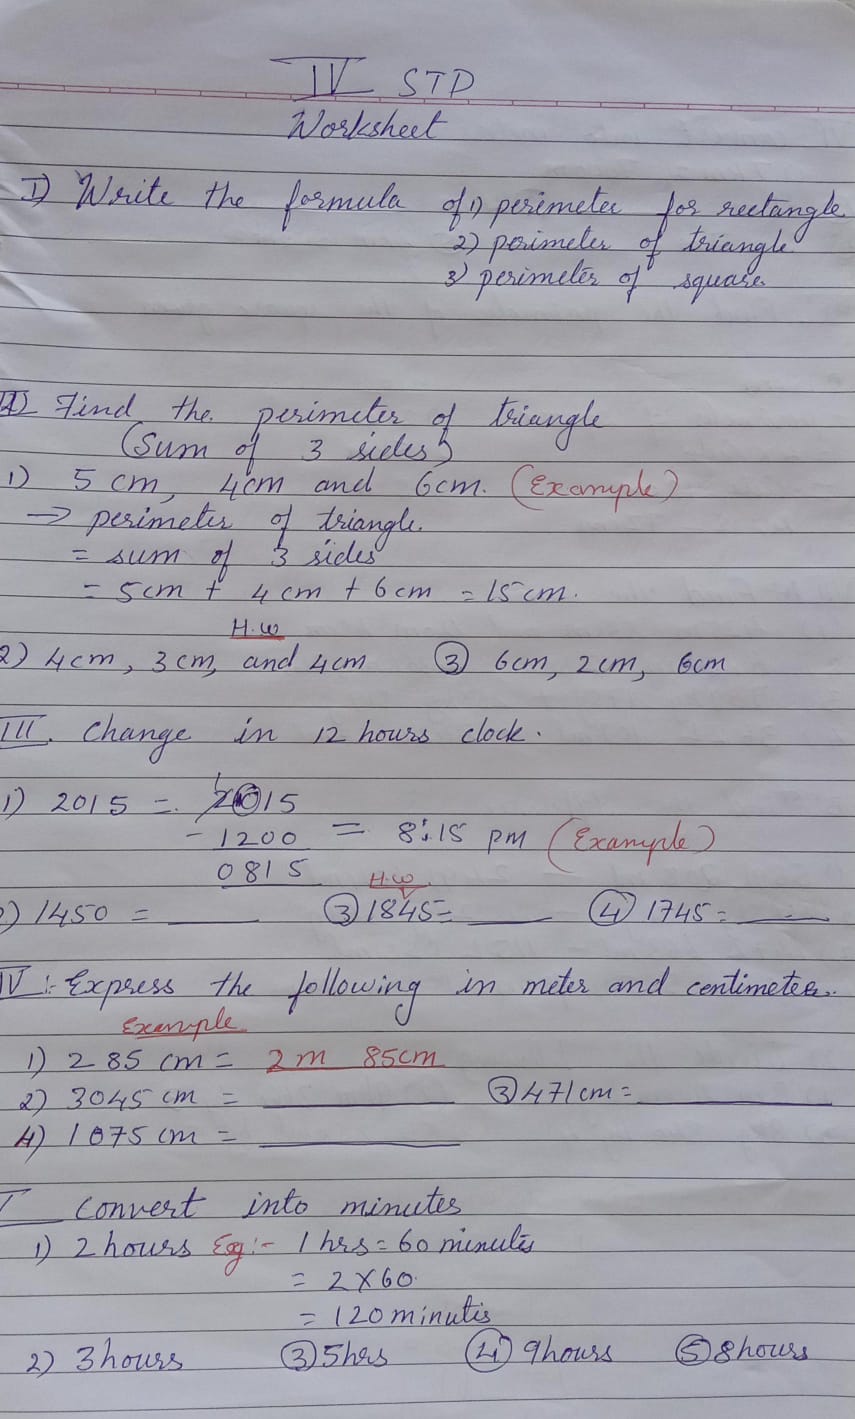 IV STD
Worksheet
I) Write the formula of 1) perimeter for rectangle
2) perimeter of triangle
3) perimeter of square
II) Find the perimeter of triangle
(Sum of 3 sides)
1) 5 cm, 4cm and 6cm. (Example)
→ perimeter of triangle.
= sum of 3 sides
= 5cm + 4cm + 6cm = 15cm.
H.W
2) 4cm, 3cm, and 4cm ③ 6cm, 2cm, 6cm
III. Change in 12 hours clock.
1) 2015 = 2015
- 1200 = 8:15 pm (Example)
0815
H.W
2) 1450 = ____ ③ 1845= ____ ④ 1745= ____
IV :- Express the following in meter and centimeter.
Example
1) 285 cm = 2m 85cm
2) 3045 cm = ____ ③ 471cm = ____
4) 1075 cm = ____
V Convert into minutes
1) 2 hours Eg:- 1 hrs = 60 minutes
= 2 x 60.
= 120 minutes
2) 3 hours ③ 5hrs ④ 9hours ⑤ 8hours